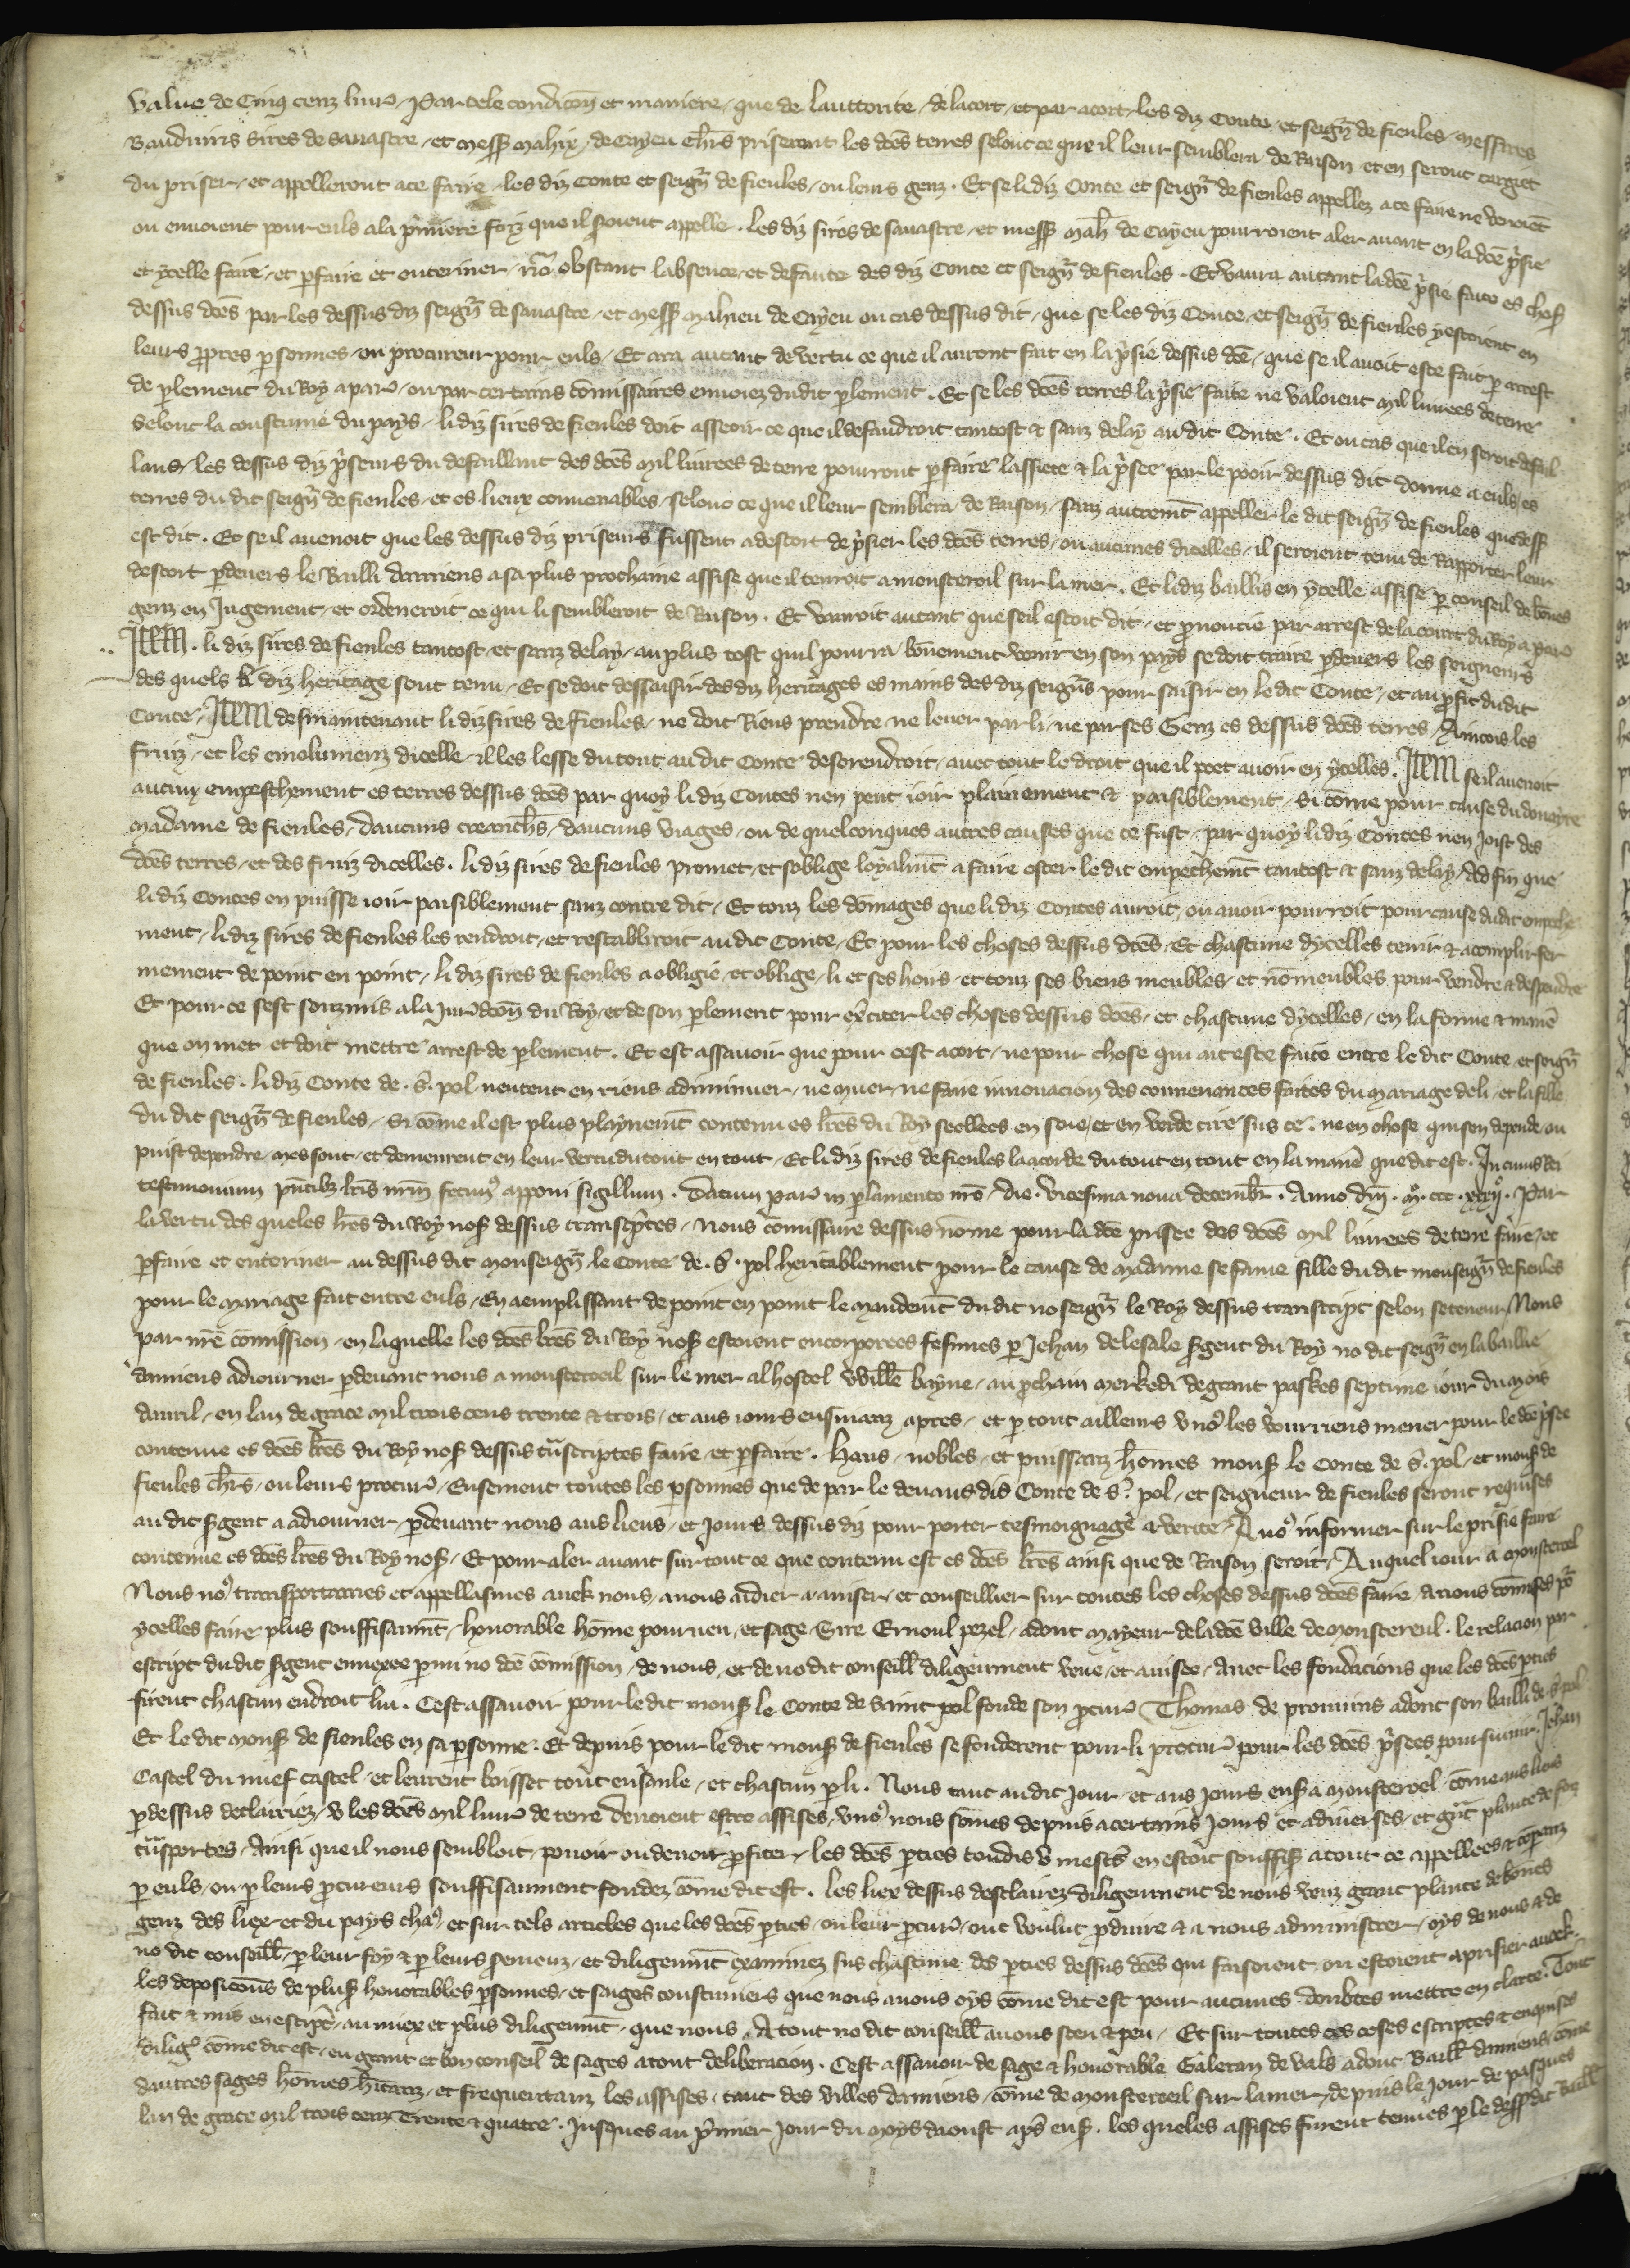 value de Cinq cenz livr. Par tele condicōn et maniere, que de lauttorite, de lacort, et par acort, les diz Conte, et seign̄ de fienles, messires
Bauduins sires de savastre, et mess Mahix, de Cayeu ch̄rs priseront les dc̄es terres selonc ce que il leur semblera de Raison, et en seront cargiet
du priser, et appelleront ace faire, les diz Conte et seign̄ de fienles, ou leurs genz. Et se li diz Conte et seign̄ de fienles appellez ace faire ne venoiēt
ou envoient pour euls ala p̄miere foiz que il soient appelle. Les diz sires de savastre, et mess Mah̄ de Cayeu pourroient aler avant en la dc̄e p̄sie
et ycelle faire, et pfaire et enteriner, nō obstant labsence, et defaute des diz Conte et seign̄ de fienles. Et vaura autant la dc̄e p̄sie faite es chos
dessus dc̄es par les dessus diz seign̄ de savastre, et mess Mahieu de Cayeu ou cas dessus dit, que se les diz Conte, et seign̄ de fienles y estoient en
leurs ppres psonnes, ou procureur pour euls, Et ara autant de vertu ce que il auront fait en la p̄sie dessus dc̄e, que se il avoit este fait p arrest
de plement du Roy a par, ou par certains cōmissaires envoiez dudit plement. Et se les dc̄es terres la p̄sie faite ne valoient mil livrees de terre
selonc la coustume du pays, li diz sires de fienles doit asseoir ce que il defaudroit tantost et sanz delay au dit Conte. Et ou cas que il en seroit defail
lans, les dessus diz p̄seurs du defaillant des dc̄es mil livrees de terre pourront pfaire lassiete et la p̄see par le pooir dessus dit donne a euls es
terres du dit seign̄ de fienles, et es lieux convenables, selonc ce que il leur semblera de Raison, sanz autremt̄ appeller le dit seign̄ de fienles que dess
est dit. Et se il avenoit que les dessus diz priseurs fussent a descort de p̄sier les dc̄es terres, ou aucunes dicelles, il seroient tenu de Rapporter leur
descort pdevers le Bailli damiens a sa plus prochaine assise que il tenroit a monsteroil sur la mer. Et li diz baillis en ycelle assise p conseil de bōnes
genz en Jugement, et ordeneroit ce qui li sembleroit de Raison. Et vauroit autant que se il estoit dit, et pnoncie par arrest de la court du Roy a par
Item. li diz sires de fienles tantost, et sanz delay, au plus tost quil pourra, bōnement venir en son pays se doit traire pdevers les seigneurs
des quels li diz heritage sont tenu, Et se doit dessaisir des diz heritages es mains des diz seign̄s pour saisir en le dit Conte, et au pfit dudit
Conte, Item desmaintenant li diz sires de fienles, ne doit Riens prendre, ne lever par li, ne par ses Genz es dessus dc̄es terres, Aincois les
fruiz, et les emolumenz dicelle, il les lesse du tout au dit Conte desorendroit, avec tout le droit que il poet avoir en ycelles. Item se il avenoit
aucun empeschement es terres dessus dc̄es par quoy li diz Contes nen peut ioir plainement et paisiblement, si cōme pour cause du douayre
madame de fienles, daucuns creanch̄s, daucuns viages, ou de quelconques autres causes que ce fust, par quoy li diz Contes nen Joist des
dc̄es terres, et des fruiz dicelles. li diz sires de fienles promet, et soblige loyalmt̄ a faire oster le dit empechemt̄ tantost et sanz delay, Ad fin que
li diz Contes en puisse ioir paisiblement sanz contre dit, Et touz les dōmages que li diz Contes auroit, ou avoir pourroit pour cause du dit empeche
ment, li diz sires de fienles les rendroit, et restabliroit au dit Conte, Et pour les choses dessus dc̄es, Et chascune dycelles tenir et acomplir fer
mement de point en point, li diz sires de fienles a obligie, et oblige, li et ses hoirs, et touz ses biens meubles, et nō meubles pour vendre et despendre
Et pour ce sest souzmis a la Jurdcōn du Roy, et de son plement pour exciter les choses dessus dc̄es, et chascune dycelles, en la forme et manē
que on met et doit mettre arrest de plement. Et est assavoir que pour cest acort, ne pour chose qui ait este faite entre le dit Conte, et seign̄
de fienles. li diz Conte de .s. pol neutent en riens adiminuer, ne muer, ne faire innovacion des convenances faites du mariage de li, et la fille
du dit seign̄ de fienles, si cōme il est plus playnemt̄ contenu es lr̄es du Roy seellees en soie, et en verde cire sus ce. ne en chose qui sen depende, ou
puist dependre, mes sont, et demeurent en leur vertu du tout en tout, Et li diz sires de fienles laacorde du tout en tout en la manē que dit est. In cuius Rei
testimonium pn̄tibz lr̄is nr̄m fecimꝰ apponi sigillum. Datum par in plamento nr̄o, die. vicesima nova decembr̄. Anno dn̄i. M. ccc. xxxij. Par
la vertu des queles lr̄es du Roy nos̄ dessus transcptes, Nous cōmissaire dessus nōme pour la dc̄e prisee des dc̄es mil livrees de terre faire, et
pfaire et enteriner au dessus dit monseign̄ le Conte de .S. pol heritablement pour le cause de madame se fame fille du dit monseign̄ de fienles
pour le mariage fait entre euls, En aemplissant de point en point le mandemt̄ du dit no seign̄ le Roy dessus transcript selon se teneur, Nous
par nr̄e cōmission, en laquelle les dc̄es lr̄es du Roy nos̄ estoient encorporees fesimes p Jehan de lesale sgent du Roy no dit seign̄ en la baillie
damiens adiourner pdevant nous a monsteroeil sur le mer al hostel Willē bayne, au pchain merkedi de grant paskes septime iour du mois
davril, en lan de grace mil trois cens trente et trois, et aus iours ensivanz apres, et p tout ailleurs v noꝰ les vourriens mener pour le dc̄e p̄see
contenue es dc̄es lr̄es du Roy nos̄ dessus tn̄scriptes faire, et pfaire. Haus, nobles, et puissanz hōmes mons̄ le Conte de s. pol, et mons̄ de
fienles ch̄rs, ou leurs procur, Ensement toutes les psonnes que de par le devans dis Conte de S. pol, et seigneur de fienles seront requises
au dit sgent a adiourner, pdevant nous aus lieus, et Jours dessus diz pour porter tesmoignage a verite, A noꝰ informer sur le prisie faire
contenue es dc̄es lr̄es du Roy nos̄, Et pour aler avant sur tout ce que contenu est es dc̄es lr̄es ainsi que de Raison seroit, Auquel iour a monsteroel
Nous noꝰ transportames et appellasmes avek nous, a nous aidier a aviser, et conseillier sur toutes les choses dessus dc̄es faire, a nous cōmises p̄
ycelles faire plus souffisanmt̄, honorable hōme pourveu, et sage, Sire Ernoul pezel, adont mayeur de la dc̄e ville de monstereul. le relacion par
escript du dit sgent annexee pmi no dc̄e cōmission, de nous, et de no dit conseill̄ diligenment veue, et avisee, Avec les fondacions que les dc̄es pties
firent chascun endroit lui. Cest assavoir pour le dit mons̄ le Conte de Saint pol fonde son pcur Thomas de pronuins adont son bailli de s. pol
Et le dit mons̄ de fienles en sa psonne. Et depuis pour le dit mons̄ de fienles se fonderent pour li procur pour les dc̄es p̄sees poursuivir. Jehan
Castel du nuef castel, et leurent boisset tout ensanle, et chascun p li. Nous tant au dit Jour, et aus Jours ens̄ a monsteroel, cōme aus lieus
pdessus declairiez, v les dc̄es mil livr de terre devoient estre assises, v noꝰ nous sōmes depuis a certains Jours et a diverses, et grāt plante de fois
tn̄sportes, Ainsi que il nous sembloit, povoir ou devoir pfiter, les dc̄es pties toudis en estoit souffis a tout ce appellees, et cōpanz
p euls, ou p leurs pcureurs souffisanment fondez cōme dit est. Les liex dessus desclairez diligenment de nous venz grant plante de bōnes
genz des liex, et du pays chaꝰ, et sur tels articles que les dc̄es pties, ou leur pcur, ont voulut pduire et a nous administrer, oys de nous et de
no dit conseill̄, p leur foy et p leurs sermens, et diligenmt̄ examinez sus chascune des pties dessus dc̄es qui faisoient, ou estoient a prisier avoek
les deposicōns de pluss honorables psonnes, et sages coustumiers que nous avons oys cōme dit est pour aucunes doubtes mettre en clarte. Tout
fait et mis en escript, au miex et plus diligenmt̄, que nous, A tout no dit conseill̄ avons sceu et peu, Et sur toutes ces coses escriptes et enquises
diligꝰ cōme dit est, eu grant et bon conseil de sages a tout deliberacion. Cest assavoir de sage et honorable Galeran de vals adont Baill̄ damiens, cōme
dautres sages hōmes, et frequentanz les assises, tant des villes damiens, cōme de monsteroeil sur la mer, depuis le Jour de pasques
lan de grace mil trois cenz Trente et quatre, Jusques au p̄mier Jour du moys daoust apꝰ ens̄. les queles assises furent tenues p le dess dit Baill̄